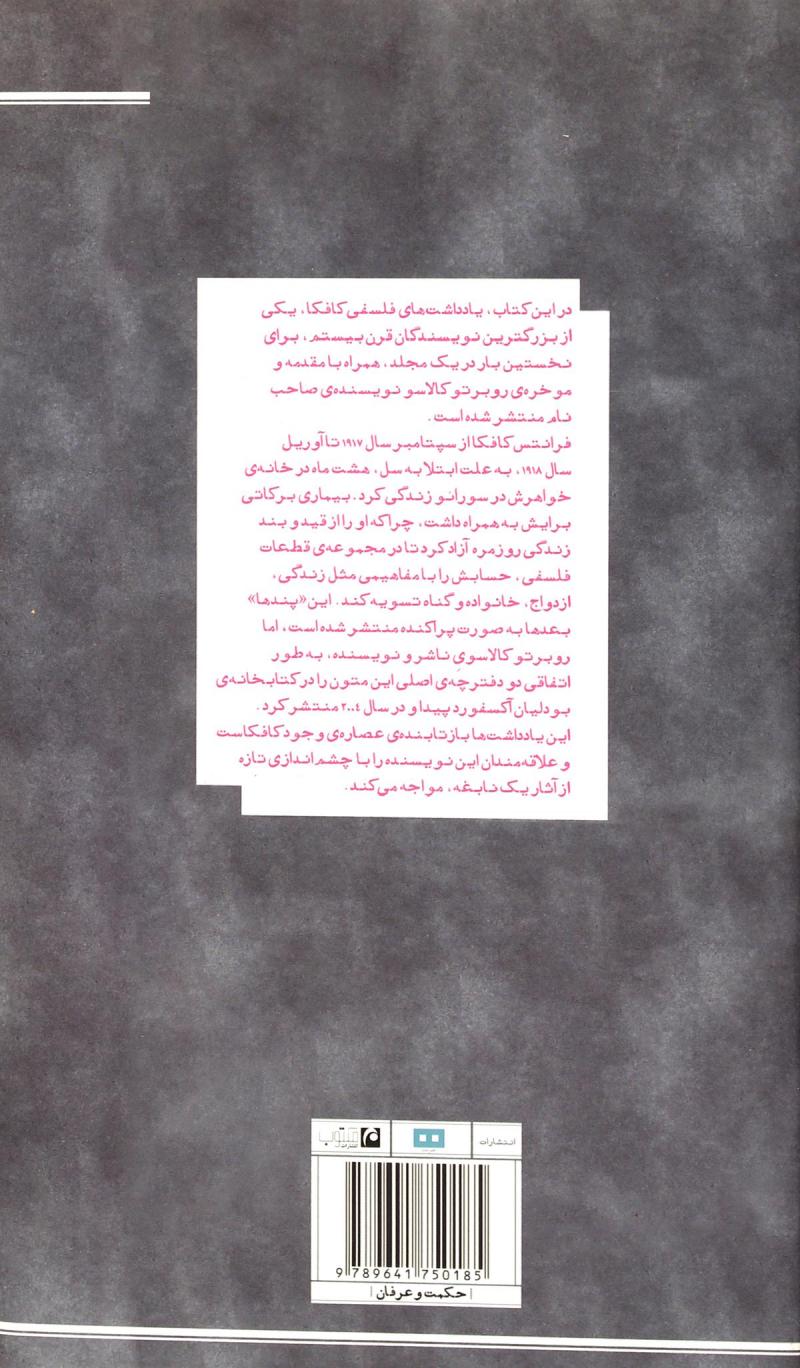 در این کتاب، یادداشت‌های فلسفی کافکا، یکی
از بزرگترین نویسندگان قرن بیستم، برای
نخستین بار در یک مجلد، همراه با مقدمه و
موخره‌ی روبرتو کالاسو نویسنده‌ی صاحب
نام منتشر شده است.
فرانتس کافکا از سپتامبر سال ۱۹۱۷ تا آوریل
سال ۱۹۱۸، به علت ابتلا به سل، هشت ماه در خانه‌ی
خواهرش در سورانو زندگی کرد. بیماری برکاتی
برایش به همراه داشت، چراکه او را از قید و بند
زندگی روزمره آزاد کرد تا در مجموعه‌ی قطعات
فلسفی، حسابش را با مفاهیمی مثل زندگی،
ازدواج، خانواده و گناه تسویه کند. این «پندها»
بعدها به صورت پراکنده منتشر شده است، اما
روبرتو کالاسوی ناشر و نویسنده، به طور
اتفاقی دو دفترچه‌ی اصلی این متون را در کتابخانه‌ی
بودلیان آکسفورد پیدا و در سال ۲۰۰۴ منتشر کرد.
این یادداشت‌ها بازتابنده‌ی عصاره‌ی وجود کافکاست
و علاقه‌مندان این نویسنده را با چشم‌اندازی تازه
از آثار یک نابغه، مواجه می‌کند.
انتشارات
مکتوب
انتشارات
9 789641 750185
| حکمت و عرفان |